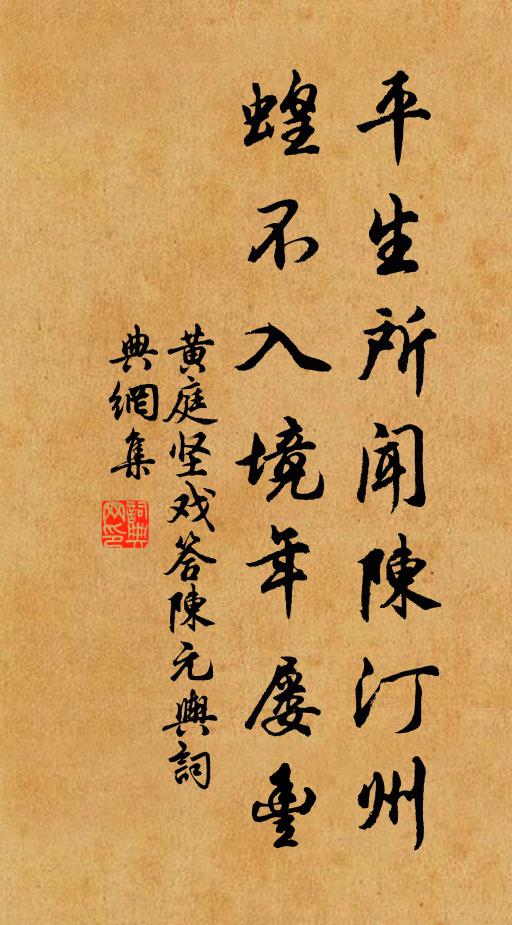 平生所闻陳汀州
蝗不入境年屡豊
黄庭坚戏答陳元輿詞
典網集
詞典網印